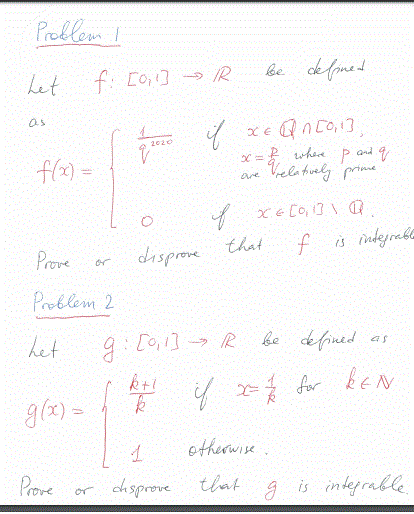 Problem 1
Let f: [0,1] → ℝ be defined
as
f(x) = { 1/q^2020 if x ∈ ℚ ∩ [0,1],
x = p/q where p and q
are relatively prime
0 if x ∈ [0,1] \ ℚ.
Prove or disprove that f is integrable
Problem 2
Let g: [0,1] → ℝ be defined as
g(x) = { k+1/k if x = 1/k for k ∈ ℕ
1 otherwise.
Prove or disprove that g is integrable